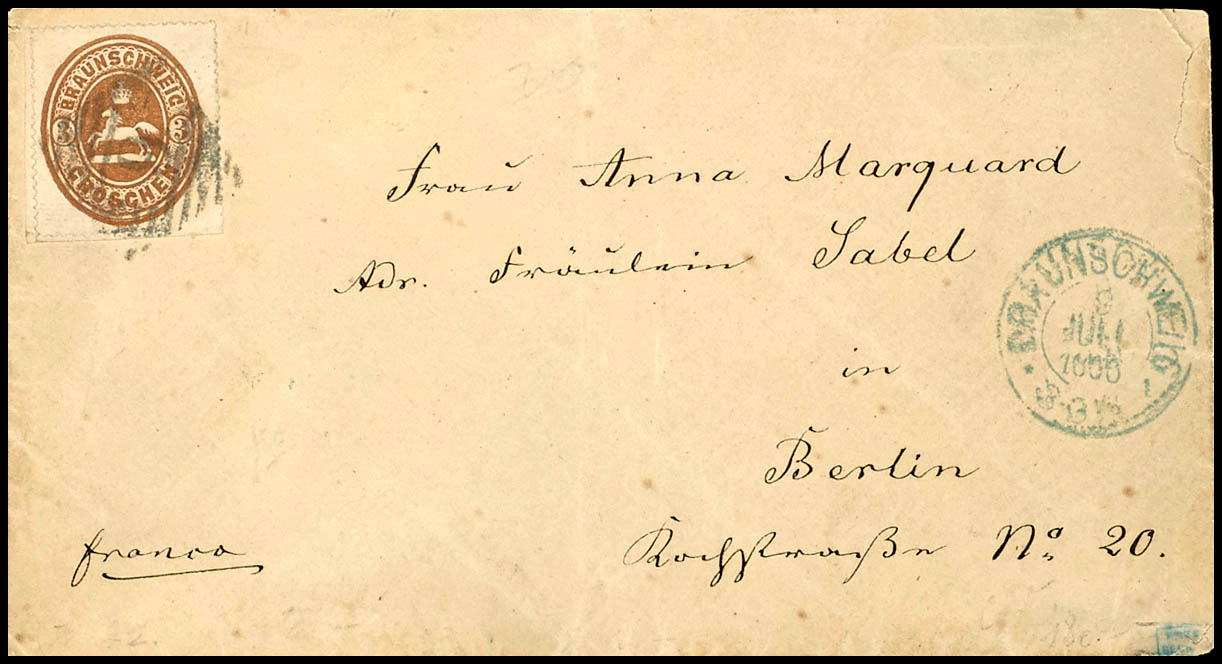 BRAUNSCHWEIG
3 3
GROSCHEN
Frau Anna Marquard
Adr. Fräulein Sabel
in
Berlin
Kochstraße No. 20.
franco
BRAUNSCHWEIG
9
JULI